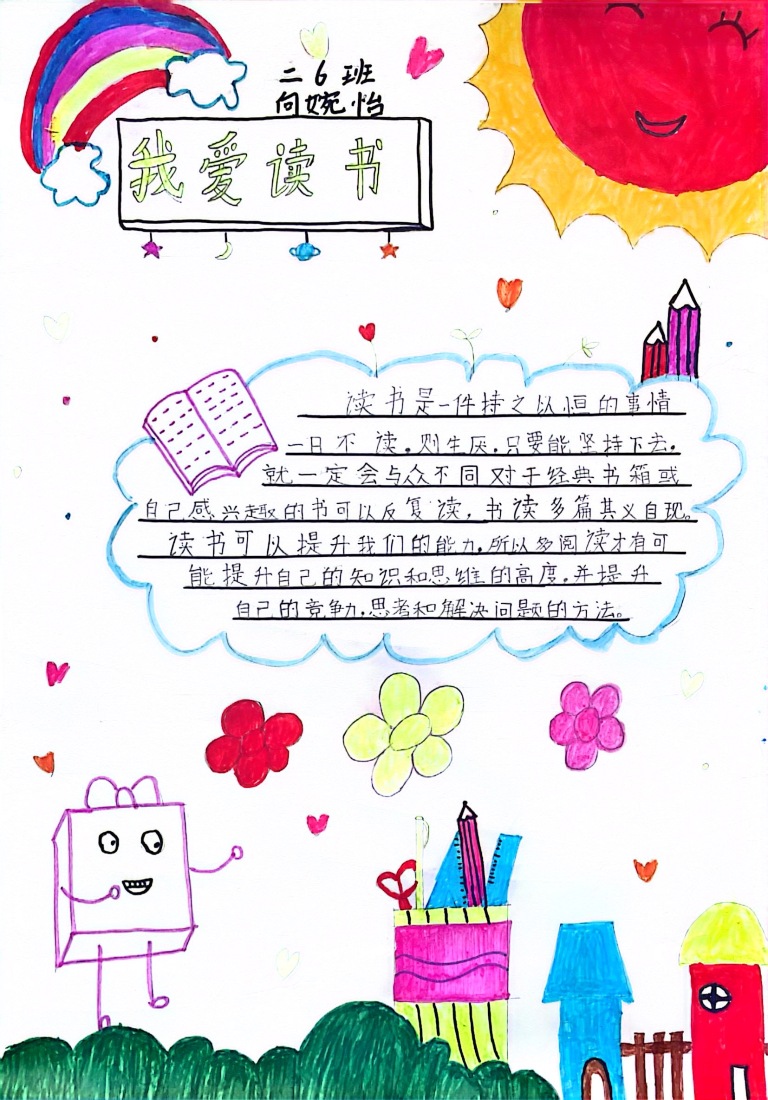 二6班
向婉怡
我爱读书
读书是一件持之以恒的事情
一日不读.则生厌.只要能坚持下去.
就一定会与众不同对于经典书箱或
自己感兴趣的书可以反复读,书读多篇其义自现。
读书可以提升我们的能力.所以多阅读才有可
能提升自己的知识和思维的高度.并提升
自己的竞争力.思考和解决问题的方法。